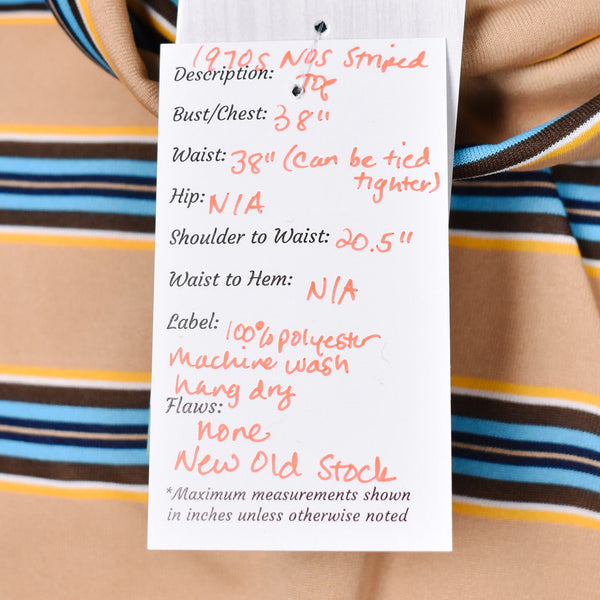 1970s NOS Striped
Description: Top
Bust/Chest: 38"
Waist: 38" (can be tied
tighter)
Hip: N/A
Shoulder to Waist: 20.5"
Waist to Hem: N/A
Label: 100% polyester
Machine wash
hang dry
Flaws:
none
New Old Stock
*Maximum measurements shown
in inches unless otherwise noted